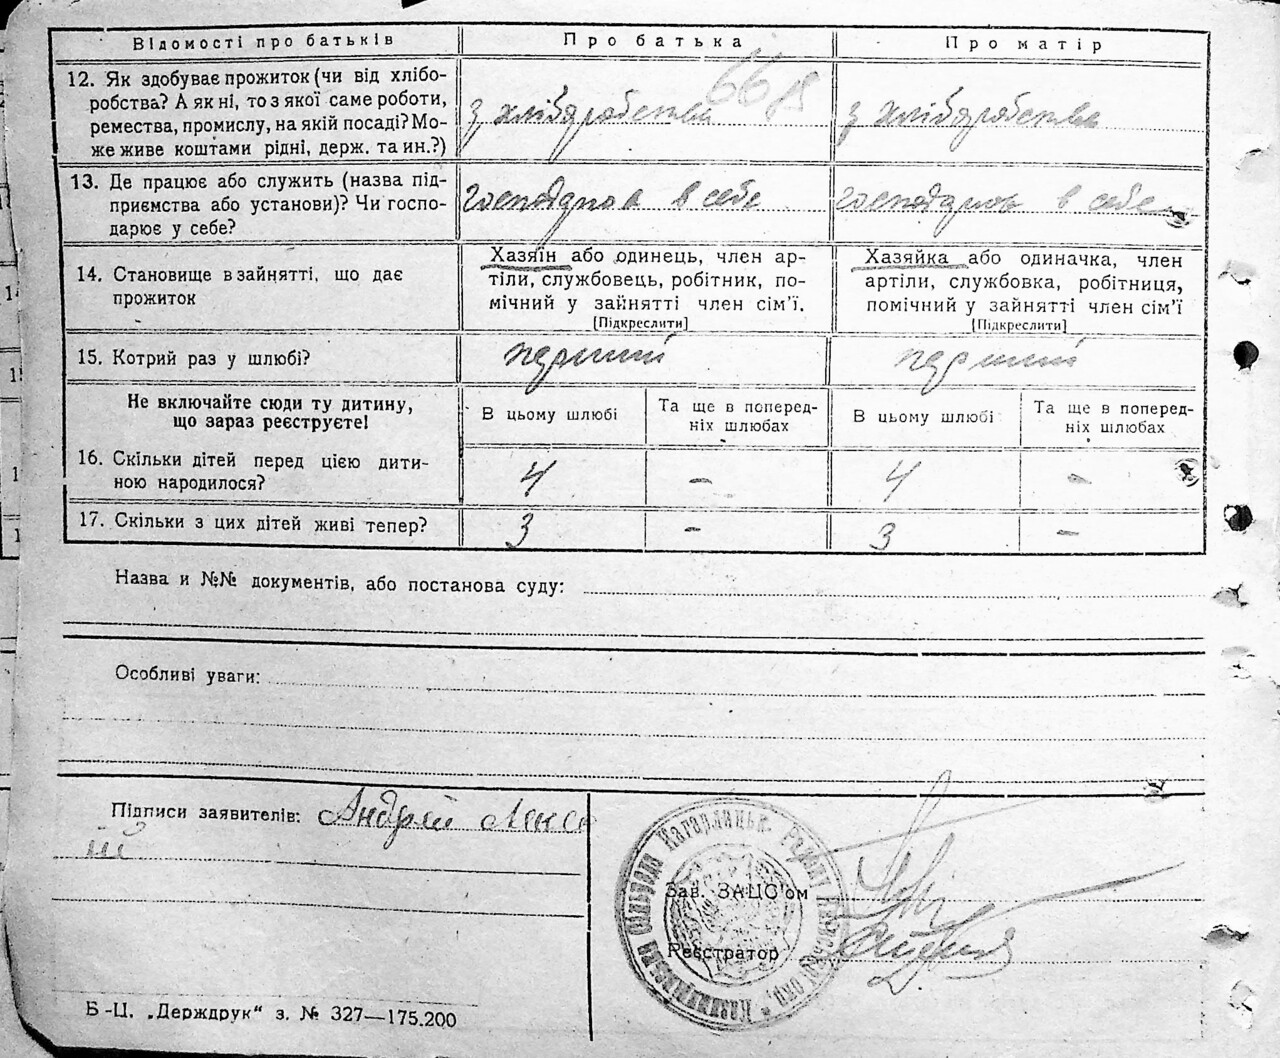 Відомості про батьків
Про батька
Про матір
12. Як здобуває прожиток (чи від хлібо-
робства? А як ні, то з якої саме роботи,
ремества, промислу, на якій посаді? Мо-
же живе коштами рідні, держ. та ин.?)
66
з хліборобства
з хліборобства
13. Де працює або служить (назва під-
приємства або установи)? Чи госпо-
дарює у себе?
в себе
в себе
14. Становище в зайнятті, що дає
прожиток
Хазяїн або одинець, член ар-
тіли, службовець, робітник, по-
мічний у зайнятті член сім'ї.
[Підкреслити]
Хазяйка або одиначка, член
артіли, службовка, робітниця,
помічний у зайнятті член сім'ї
[Підкреслити]
15. Котрий раз у шлюбі?
перший
перший
Не включайте сюди ту дитину,
що зараз реєструєте!
В цьому шлюбі
Та ще в поперед-
ніх шлюбах
В цьому шлюбі
Та ще в поперед-
ніх шлюбах
16. Скільки дітей перед цією дити-
ною народилося?
4
–
4
–
17. Скільки з цих дітей живі тепер?
3
–
3
–
Назва и №№ документів, або постанова суду:
Особливі уваги:
Підписи заявителів: Андрій
Зав. ЗАЦС'ом
Реєстратор
Кагарлицьк. Району
Б-Ц. „Держдрук“ з. № 327—175.200